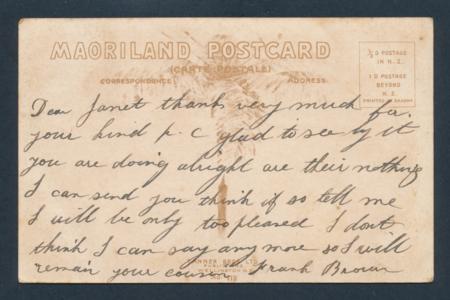 MAORILAND POSTCARD
(CARTE POSTALE)
CORRESPONDENCE ADDRESS
½ D POSTAGE
IN N.Z.
1 D POSTAGE
BEYOND
N.Z.
PRINTED IN SAXONY
Dear Janet thanks very much for
your kind p.c glad to see by it
you are doing alright are their nothing
I can send you think if so tell me
I will be only too pleased I dont
think I can say any more so I will
remain your cousin Frank Brown
TANNER BROS LTD
PUBLISHERS
WELLINGTON N.Z.